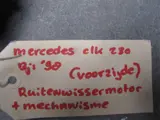 mercedes clk 230
Bj: '98
(voorzijde)
Ruitenwissermotor
+ mechanisme